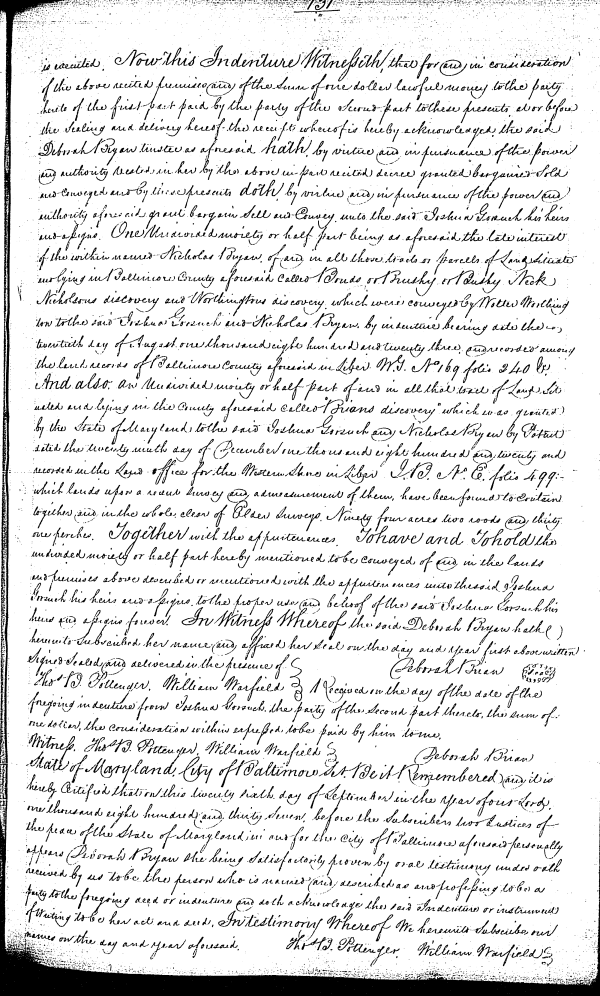 131
is executed. Now this Indenture Witnesseth, that for and in consideration
of the above recited premises, and of the sum of one dollar lawful money to the party
hereto of the first part paid by the party of the Second part to these presents at or before
the Sealing and delivery hereof the receipt whereof is hereby acknowledged, the said
Deborah Bryan trustee as aforesaid hath, by virtue and in pursuance of the power
and authority vested in her by the above in part recited decree granted bargained Sold
and Conveyed and by these presents doth by virtue and in pursuance of the power and
authority aforesaid grant bargain Sell and Convey unto the said Joshua Gorsuch his heirs
and assigns. One Undivided moiety or half part being as aforesaid the late interest
of the within named Nicholas Bryan, of and in all those tracts or parcels of Land Situate
and lying in Baltimore County aforesaid called Bonds, or Brushy or Bushy Neck
Nicholsons discovery and Worthingtons discovery, which were conveyed by Walter Worthing
ton to the said Joshua Gorsuch and Nicholas Bryan, by indenture bearing date the
twentieth day of August one thousand eight hundred and twenty three, and recorded among
the land records of Baltimore County aforesaid in Liber W.G. No 169 folio 240 &c.
And also, an Undivided moiety or half part of and in all that tract of Land Sit
uated and lying in the County aforesaid called "Brians discovery" which was granted
by the State of Maryland to the said Joshua Gorsuch and Nicholas Bryan by Patent
dated the twenty ninth day of December one thousand eight hundred and twenty and
recorded in the Land office for the Western Shore in Liber I.B. No. E. folio 499:-
which lands upon a recent Survey and admeasurement of them, have been found to Contain
together and in the whole, clear of Elder Surveys, Ninety four acres two roods and thirty
one perches. Together with the appurtenances. To have and To hold the
undivided moiety or half part hereby mentioned to be conveyed of and in the lands
and premises above described or mentioned with the appurtenances unto the said Joshua
Gorsuch his heirs and assigns, to the proper use and behoof of the said Joshua Gorsuch his
heirs and assigns forever. In Witness Whereof the said Deborah Bryan hath
hereunto Subscribed her name and affixed her Seal on the day and year first above written.
Signed Sealed and delivered in the presence of Deborah Brian
Thos B. Pottenger. William Warfield Received on the day of the date of the
foregoing indenture from Joshua Gorsuch, the party of the Second part thereto, the sum of
one dollar, the consideration within expressed to be paid by him to me.
Witness. Thos B. Pottenger, William Warfield Deborah Brian
State of Maryland, City of Baltimore Sct Be it Remembered, and it is
hereby Certified that on this twenty Sixth day of September in the Year of our Lord
one thousand eight hundred and thirty Seven, before the Subscribers two Justices of
the peace of the State of Maryland in and for the City of Baltimore aforesaid personally
appears Deborah Bryan she being Satisfactorily proven by oral testimony under oath
received by us to be the person who is named and described as and professing to be a
party to the foregoing deed or indenture and doth acknowledge the said Indenture or instrument
of Writing to be her act and deed. In testimony Whereof We hereunto Subscribe our
names on the day and year aforesaid. Thos B. Pottenger. William Warfield